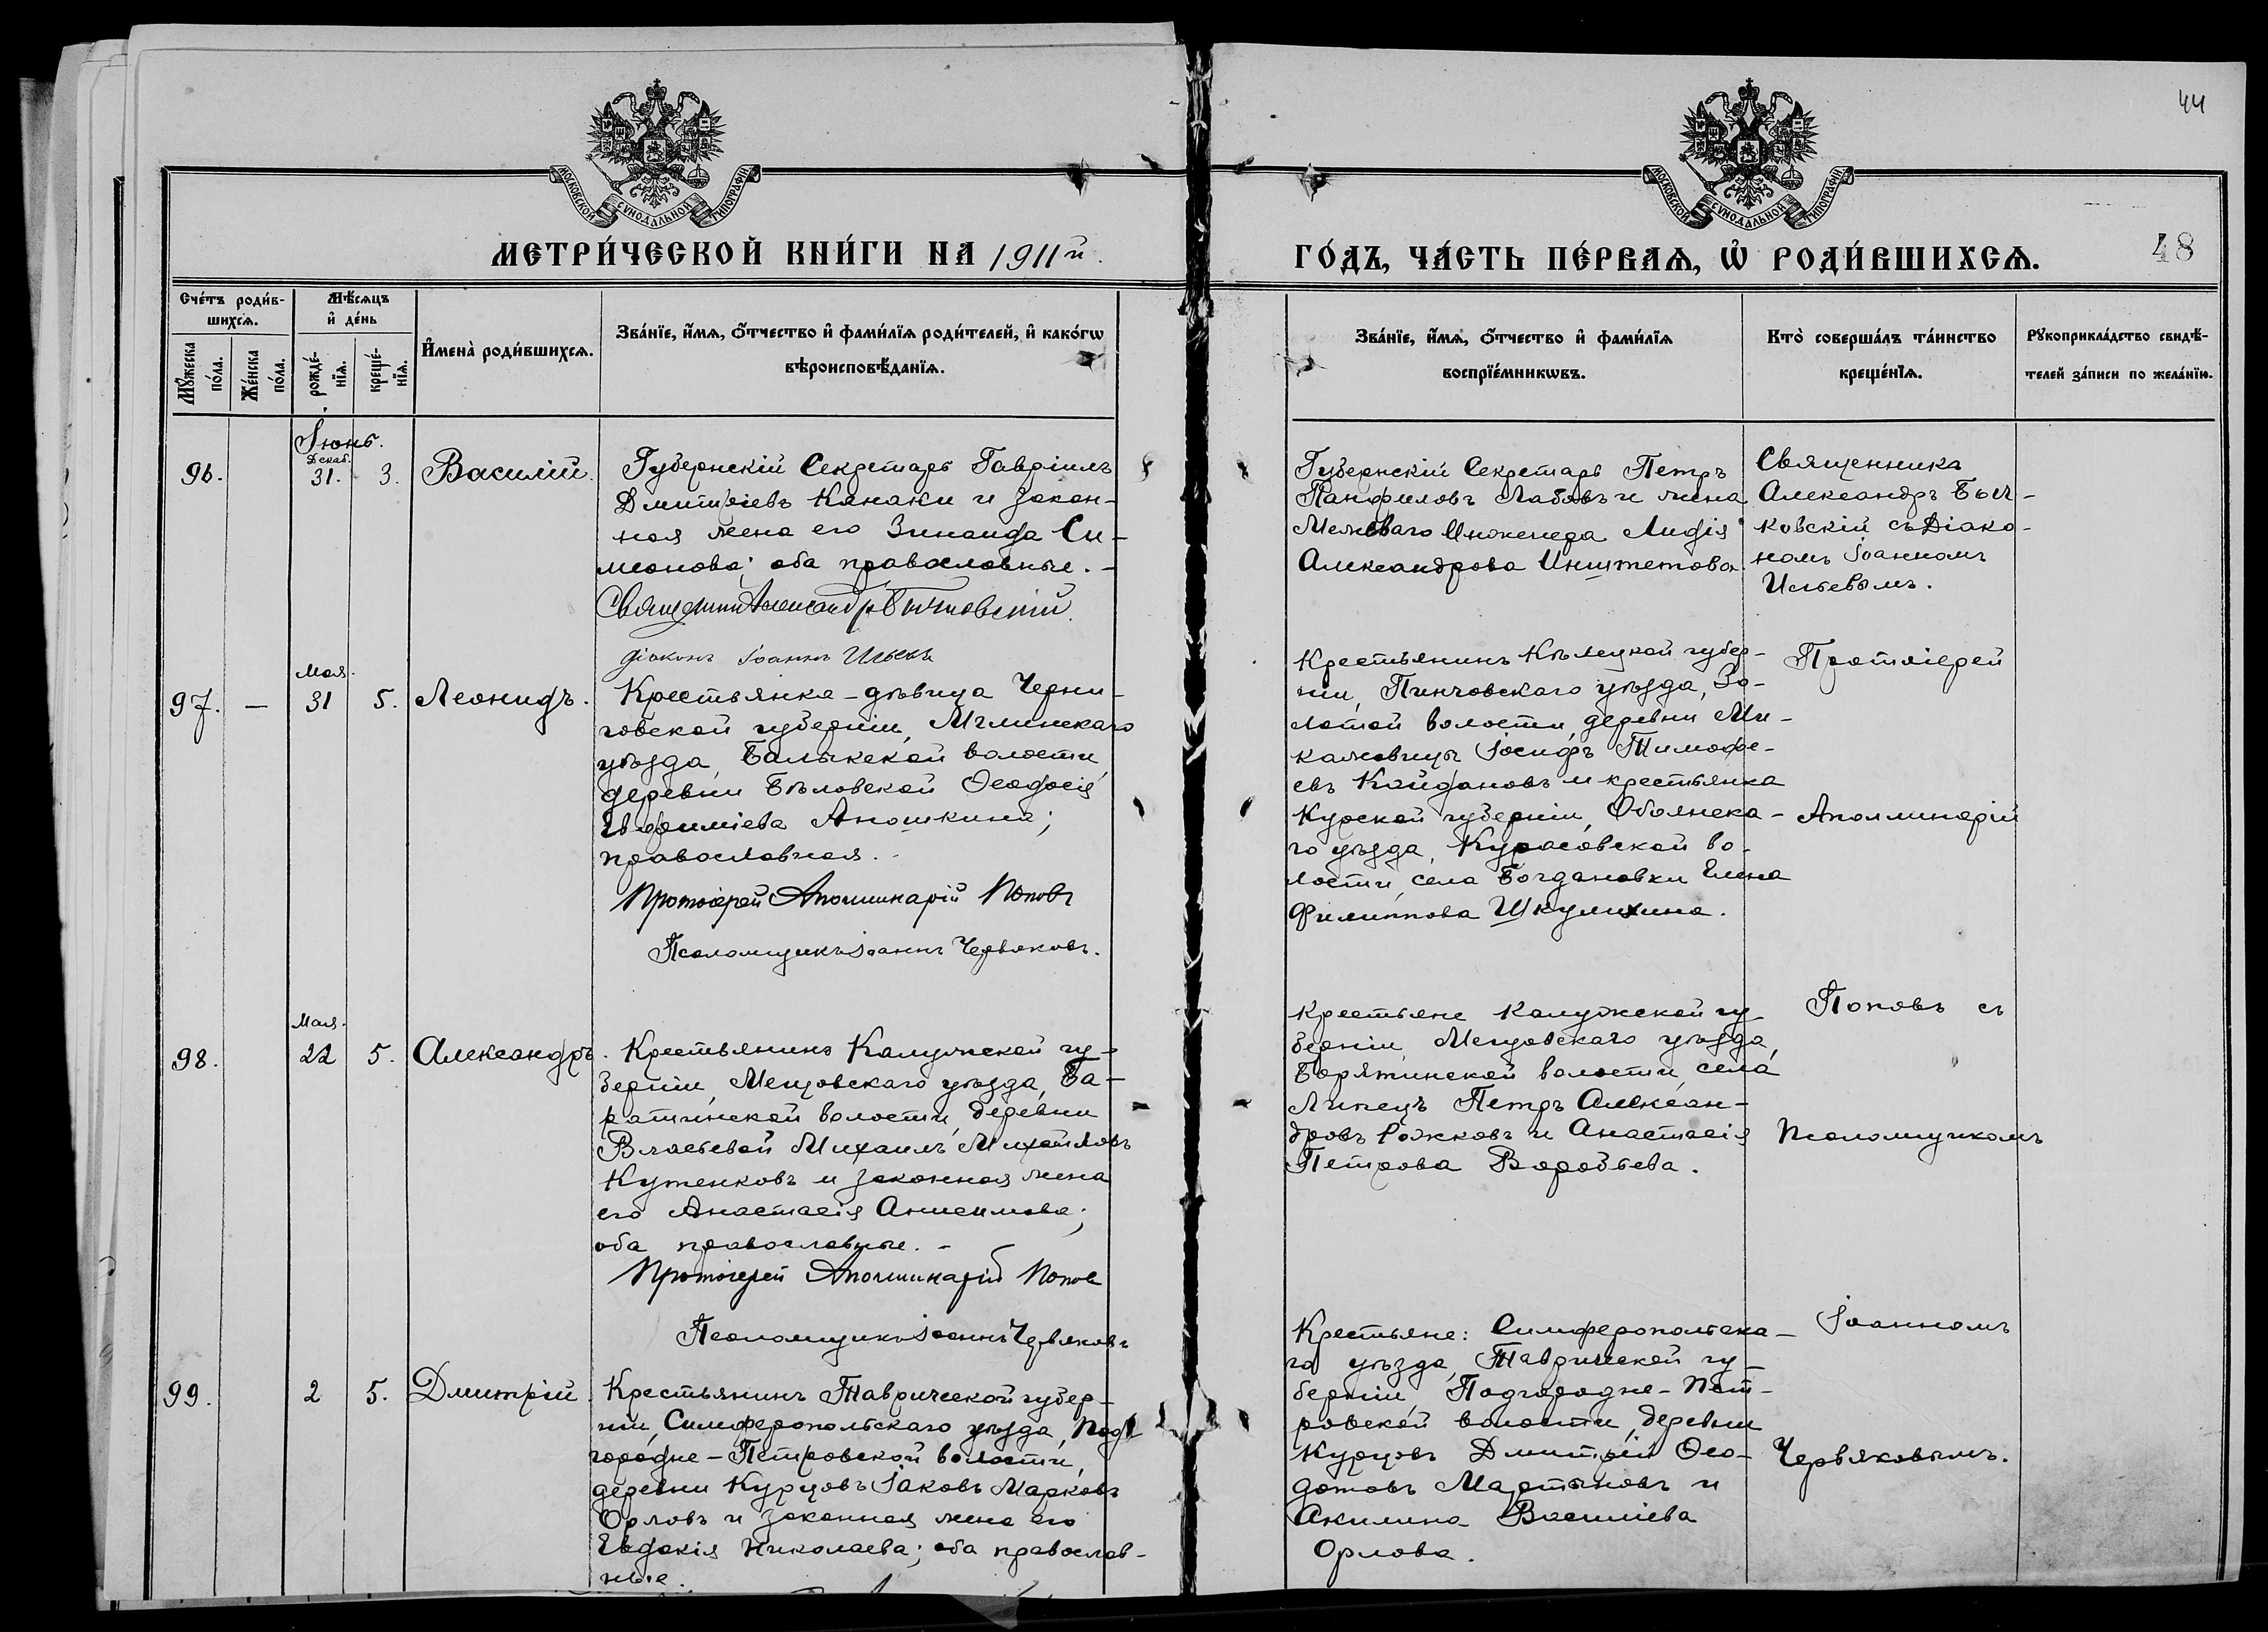 44
МОСКОВСКОЙ СѴНОДАЛЬНОЙ ТИПОГРАФІИ
МОСКОВСКОЙ СѴНОДАЛЬНОЙ ТИПОГРАФІИ
МЕТРИ́ЧЕСКОЙ КНИ́ГИ НА 1911й.
ГО́ДЪ, ЧА́СТЬ ПЕ́РВАѦ, Ѡ҆ РОДИ́ВШИХСѦ.
48
Сче́тъ роди́в-
шихсѧ.
Мꙋ́жеска
по́ла.
Же́нска
по́ла.
Мѣ́сѧцъ
и҆ де́нь
рожде́-
нїѧ.
креще́-
нїѧ.
И҆мена̀ роди́вшихсѧ.
Зва́нїе, и҆́мѧ, ѻ҆́тчество и҆ фами́лїѧ роди́телей, и҆ како́гѡ
вѣроисповѣ́данїѧ.
Зва́нїе, и҆́мѧ, ѻ҆́тчество и҆ фами́лїѧ
воспрїе́мникѡвъ.
Кто̀ соверша́лъ та́инство
креще́нїѧ.
Рꙋкоприкла́дство свидѣ́-
телей за́писи по жела́нїю.
Іюнь.
96.
Декаб.
31.
3.
Василій.
Губернскій Секретарь Гавріилъ
Дмитріевъ Канаки и закон-
ная жена его Зинаида Си-
меонова; оба православные. -
Священникъ Александръ Бычковскій.
діаконъ Іоаннъ Ильевъ
Губернскій Секретарь Петръ
Панфиловъ Лабовъ и жена
Межеваго Инженера Лидія
Александрова Инштетова.
Священникъ
Александръ Быч-
ковскій съ Діако-
номъ Іоанномъ
Ильевымъ.
97.
—
Мая.
31
5.
Леонидъ.
Крестьянка-дѣвица Черни-
говской губерніи, Мглинскаго
уѣзда, Балыкской волости,
деревни Бѣловской Ѳеодосія
Евфиміева Аношкина;
православная. -
Протоіерей Аполлинарій Поповъ
Псаломщикъ Іоаннъ Червяковъ.
Крестьянинъ Кѣлецкой губер-
ніи, Пинчовскаго уѣзда, Зо-
лотой волости, деревни Ми-
каловицы Іосифъ Тимофе-
евъ Кайдановъ и крестьянка
Курской губерніи, Обоянска-
го уѣзда, Курасовской во-
лости, села Богдановки Елена
Филиппова Шкулихина.
Протоіерей
Аполлинарій
98.
Мая.
22
5.
Александръ.
Крестьянинъ Калужской гу-
берніи, Мещовскаго уѣзда, Ба-
ратинской волости, деревни
Власьевой Михаилъ Михайловъ
Кутенковъ и законная жена
его Анастасія Анисимова;
оба православные. -
Протоіерей Аполлинарій Поповъ
Псаломщикъ Іоаннъ Червяковъ
Крестьяне Калужской гу-
берніи, Мещовскаго уѣзда,
Борятинской волости, села
Липецъ Петръ Алексан-
дровъ Рожковъ и Анастасія
Петрова Воробьева.
Поповъ съ
Псаломщикомъ
99.
2
5.
Дмитрій
Крестьянинъ Таврической губер-
ніи, Симферопольскаго уѣзда, Под-
городне-Петровской волости,
деревни Курцовъ Іаковъ Марковъ
Орловъ и законная жена его
Евдокія Николаева; оба православ-
ные.
Крестьяне: Симферопольска-
го уѣзда, Таврической гу-
берніи, Подгородне-Пет-
ровской волости, деревни
Курцовъ Дмитрій Ѳео-
дотовъ Мартыновъ и
Акилина Василіева
Орлова.
Іоанномъ
Червяковымъ.